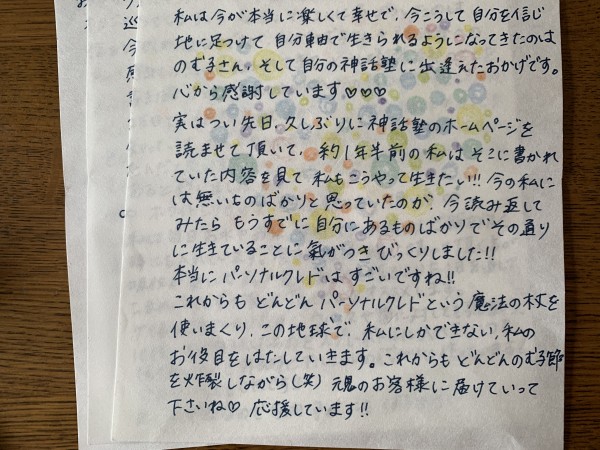 私は今が本当に楽しくて幸せで、今こうして自分を信じ
地に足つけて自分軸で生きられるようになってきたのは
のむ子さん、そして自分の神話塾に出逢えたおかげです。
心から感謝しています♡♡♡
実はつい先日、久しぶりに神話塾のホームページを
読ませて頂いて、約1年半前の私はそこに書かれ
ていた内容を見て私もこうやって生きたい!!今の私に
は無いものばかりと思っていたのが、今読み返して
みたらもうすでに自分にあるものばかりでその通り
に生きていることに氣がつきびっくりしました!!
本当にパーソナルクレドはすごいですね!!
これからもどんどんパーソナルクレドという魔法の杖を
使いまくり、この地球で、私にしかできない、私の
お役目をはたしていきます。これからもどんどんのむ子節
を炸裂しながら(笑)魂のお客様に届けていって
下さいね♡応援しています!!